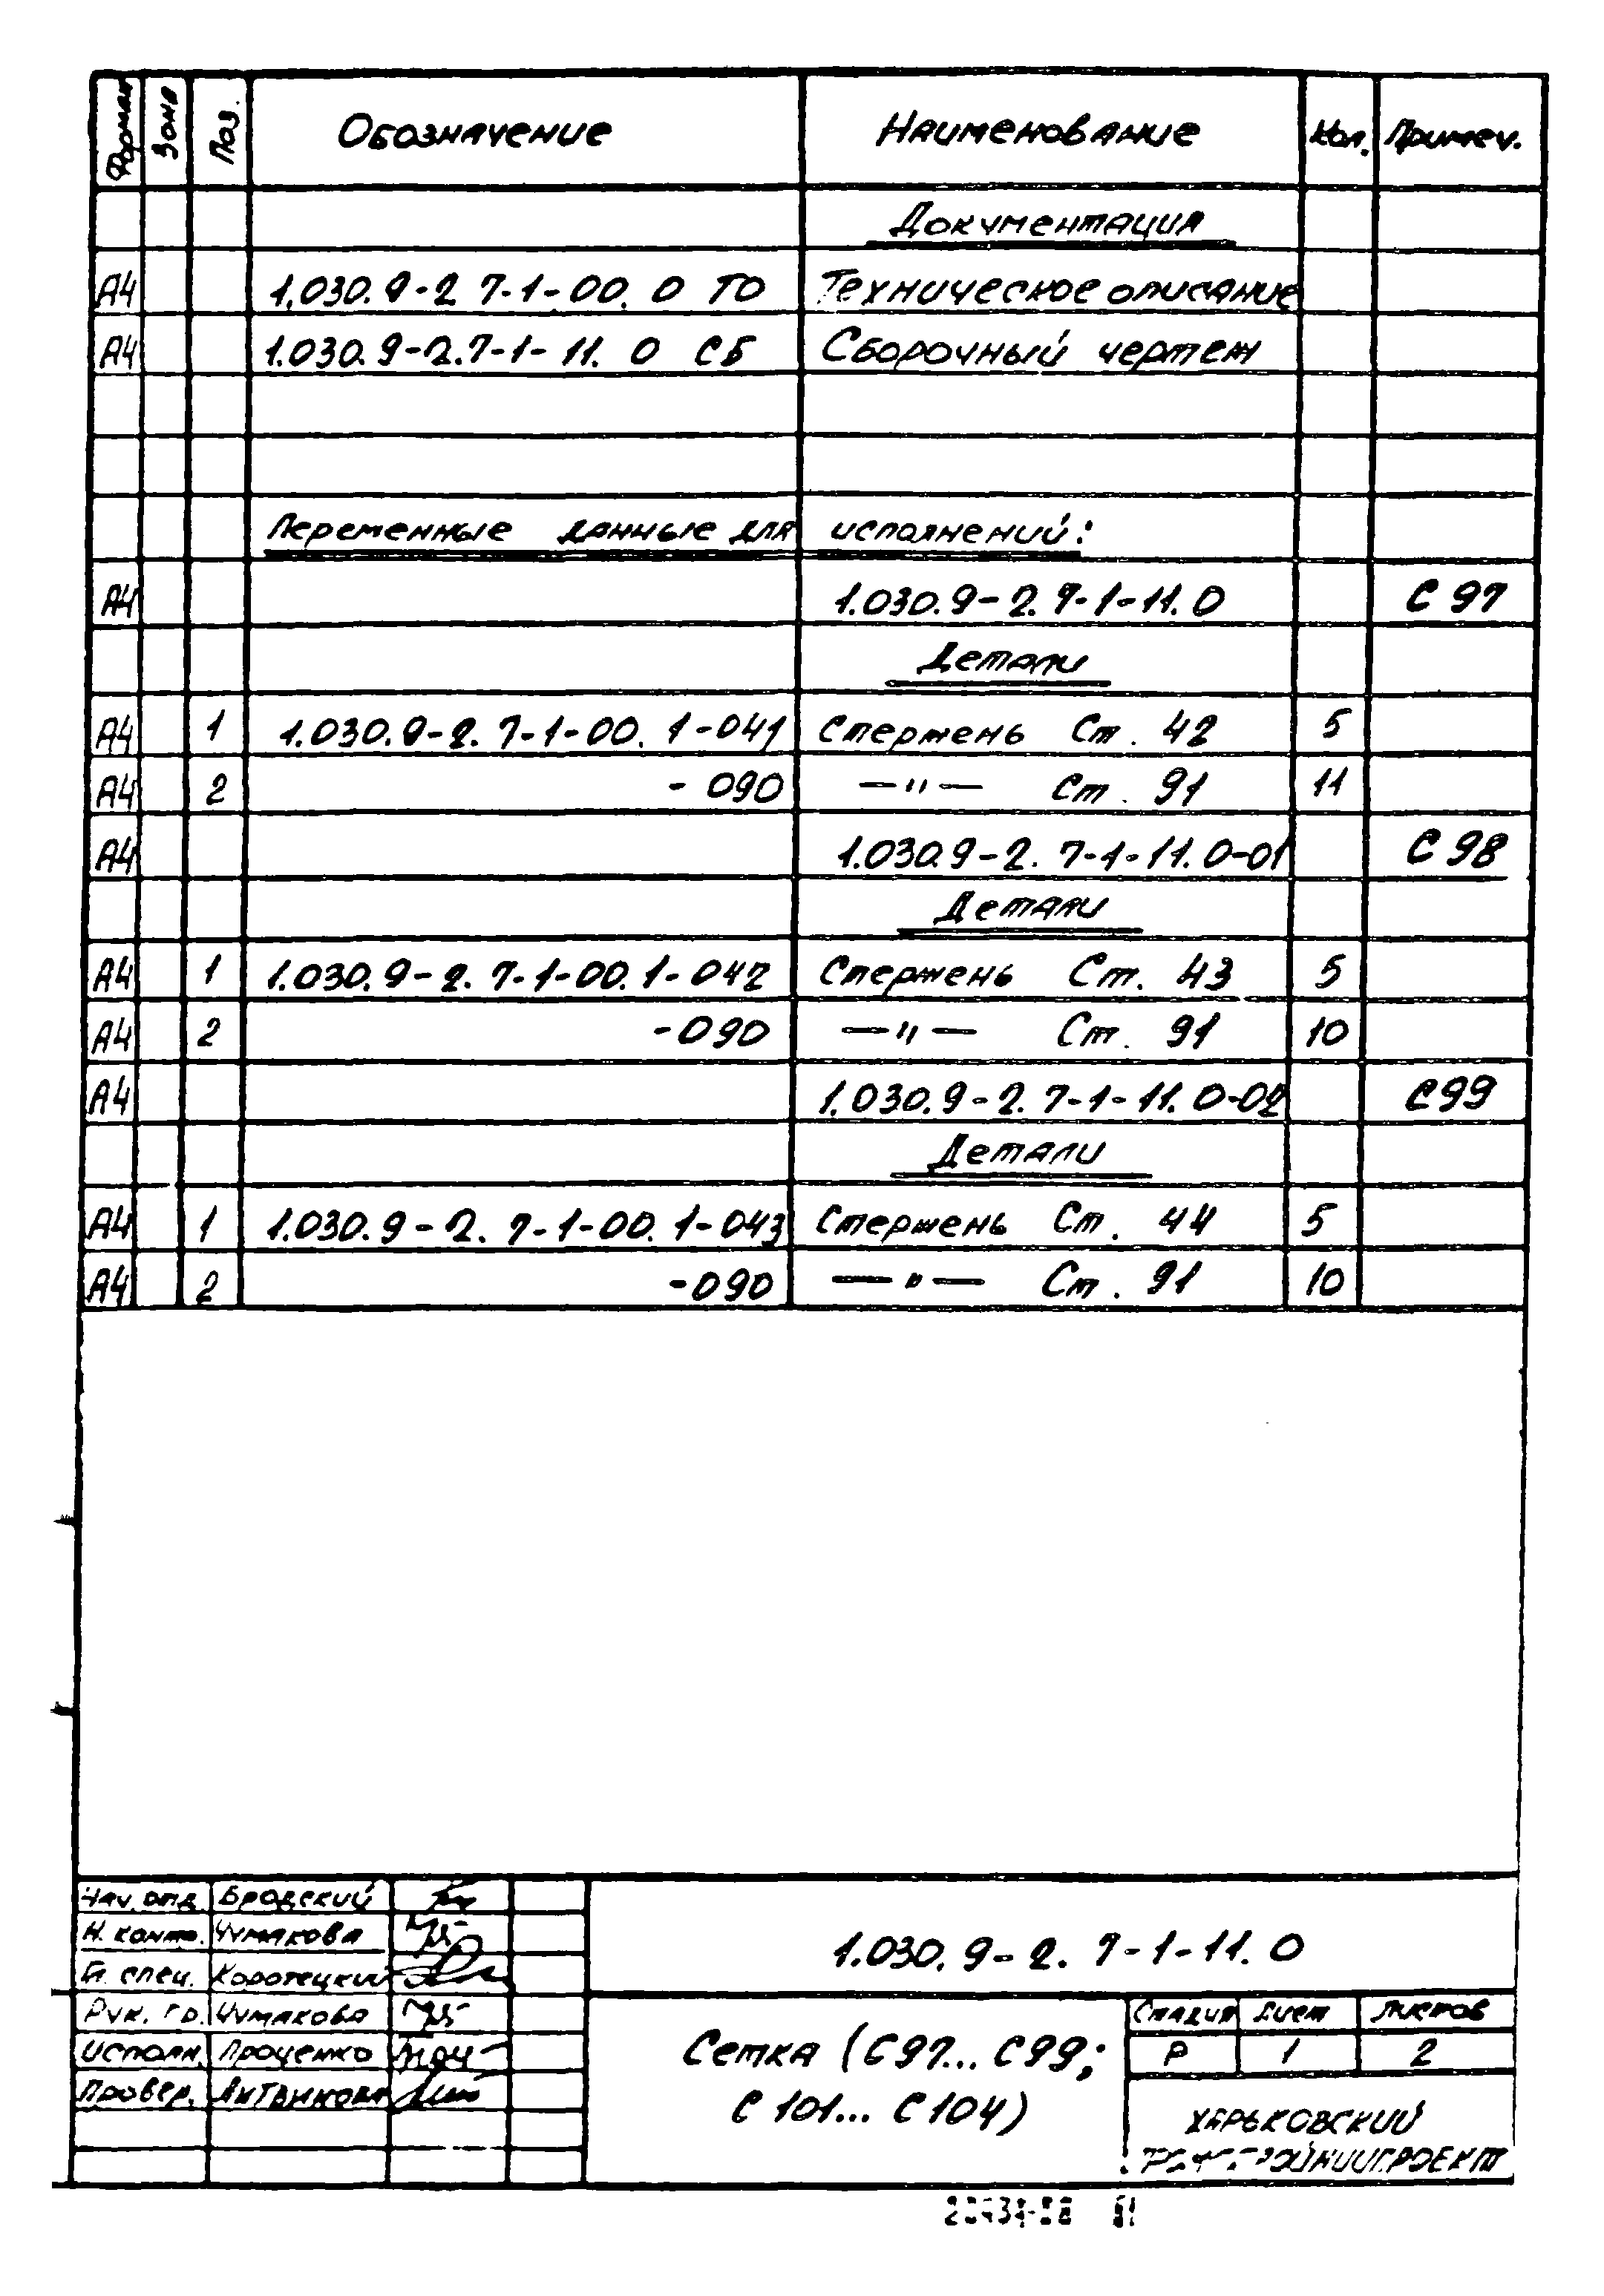 Формат Зона Поз. Обозначение Наименование Кол. Примеч.
Документация
А4 1.030.9-2 7-1-00. 0 ТО Техническое описание
А4 1.030.9-2.7-1-11. 0 СБ Сборочный чертеж
Переменные данные для исполнений:
А4 1.030.9-2.7-1-11.0 С 97
Детали
А4 1 1.030.9-2.7-1-00.1-041 Стержень Ст. 42 5
А4 2 -090 —"— Ст. 91 11
А4 1.030.9-2.7-1-11.0-01 С 98
Детали
А4 1 1.030.9-2.7-1-00.1-042 Стержень Ст. 43 5
А4 2 -090 —"— Ст. 91 10
А4 1.030.9-2.7-1-11.0-02 С 99
Детали
А4 1 1.030.9-2.7-1-00.1-043 Стержень Ст. 44 5
А4 2 -090 —"— Ст. 91 10
Нач. отд. Бродский
Н. контр. Чумакова
Гл. спец. Коротецкий
Рук. гр. Чумакова
Исполн. Проценко
Провер. Литвинова
1.030.9-2.7-1-11.0
Сетка (С97... С99;
С101... С104)
Стадия Лист Листов
Р 1 2
ХАРЬКОВСКИЙ